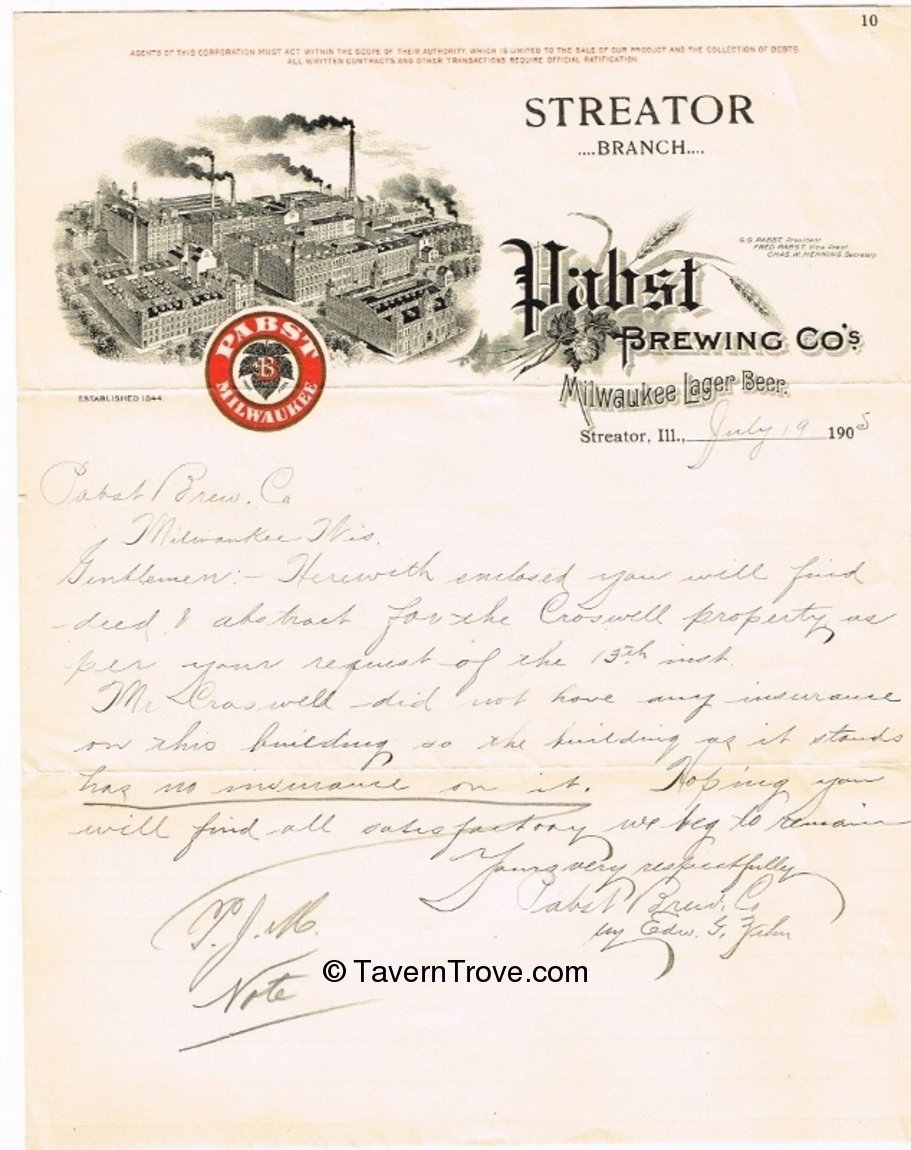 10
AGENTS OF THIS CORPORATION MUST ACT WITHIN THE SCOPE OF THEIR AUTHORITY, WHICH IS LIMITED TO THE SALE OF OUR PRODUCT AND THE COLLECTION OF DEBTS.
ALL WRITTEN CONTRACTS AND OTHER TRANSACTIONS REQUIRE OFFICIAL RATIFICATION.
STREATOR
....BRANCH....
G.G. PABST, President
FRED PABST, Vice Prest.
CHAS. W. HENNING, Secretary.
Pabst
BREWING CO'S
Milwaukee Lager Beer.
PABST
B
MILWAUKEE
ESTABLISHED 1844.
Streator, Ill., July 19 1905
Pabst Brew. Co
Milwaukee Wis.
Gentlemen:- Herewith enclosed you will find
deed & abstract for the Croswell property as
per your request of the 15th inst.
Mr Croswell did not have any insurance
on this building so the building as it stands
has no insurance on it. Hoping you
will find all satisfactory we beg to remain
Yours very respectfully
Pabst Brew. Co
by Edw. G. Zahn
T.J.M.
Note
© TavernTrove.com